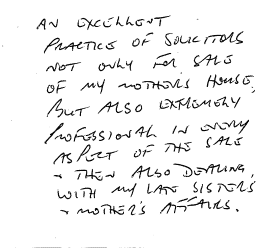 AN EXCELLENT
PRACTICE OF SOLICITORS
NOT ONLY FOR SALE
OF MY MOTHERS HOUSE,
BUT ALSO EXTREMELY
PROFESSIONAL IN EVERY
ASPECT OF THE SALE
+ THEN ALSO DEALING,
WITH MY LATE SISTERS
+ MOTHER'S AFFAIRS.